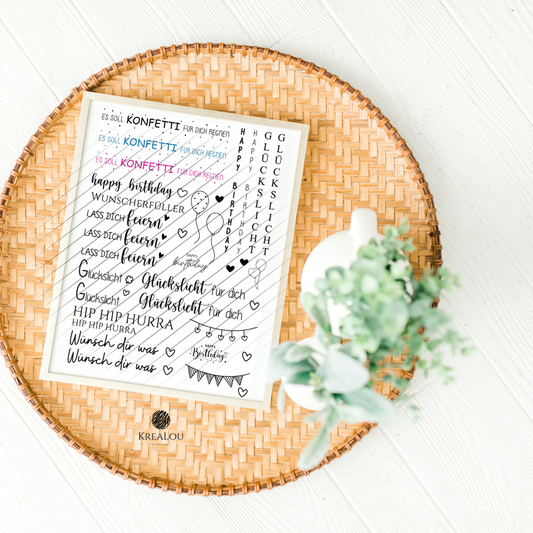 ES SOLL KONFETTI FÜR DICH REGNEN
ES SOLL KONFETTI FÜR DICH REGNEN
ES SOLL KONFETTI FÜR DICH REGNEN
happy birthday
WUNSCHERFÜLLER
LASS DICH feiern
LASS DICH feiern
LASS DICH feiern
Glückslicht
Glückslicht für dich
Glückslicht
Glückslicht für dich
HIP HIP HURRA
HIP HIP HURRA
Wünsch dir was
Wünsch dir was
HAPPY BIRTHDAY
HAPPY BIRTHDAY
GLÜCKSLICHT
GLÜCKSLICHT
happy birthday
HAPPY
Birthday
KREALOU